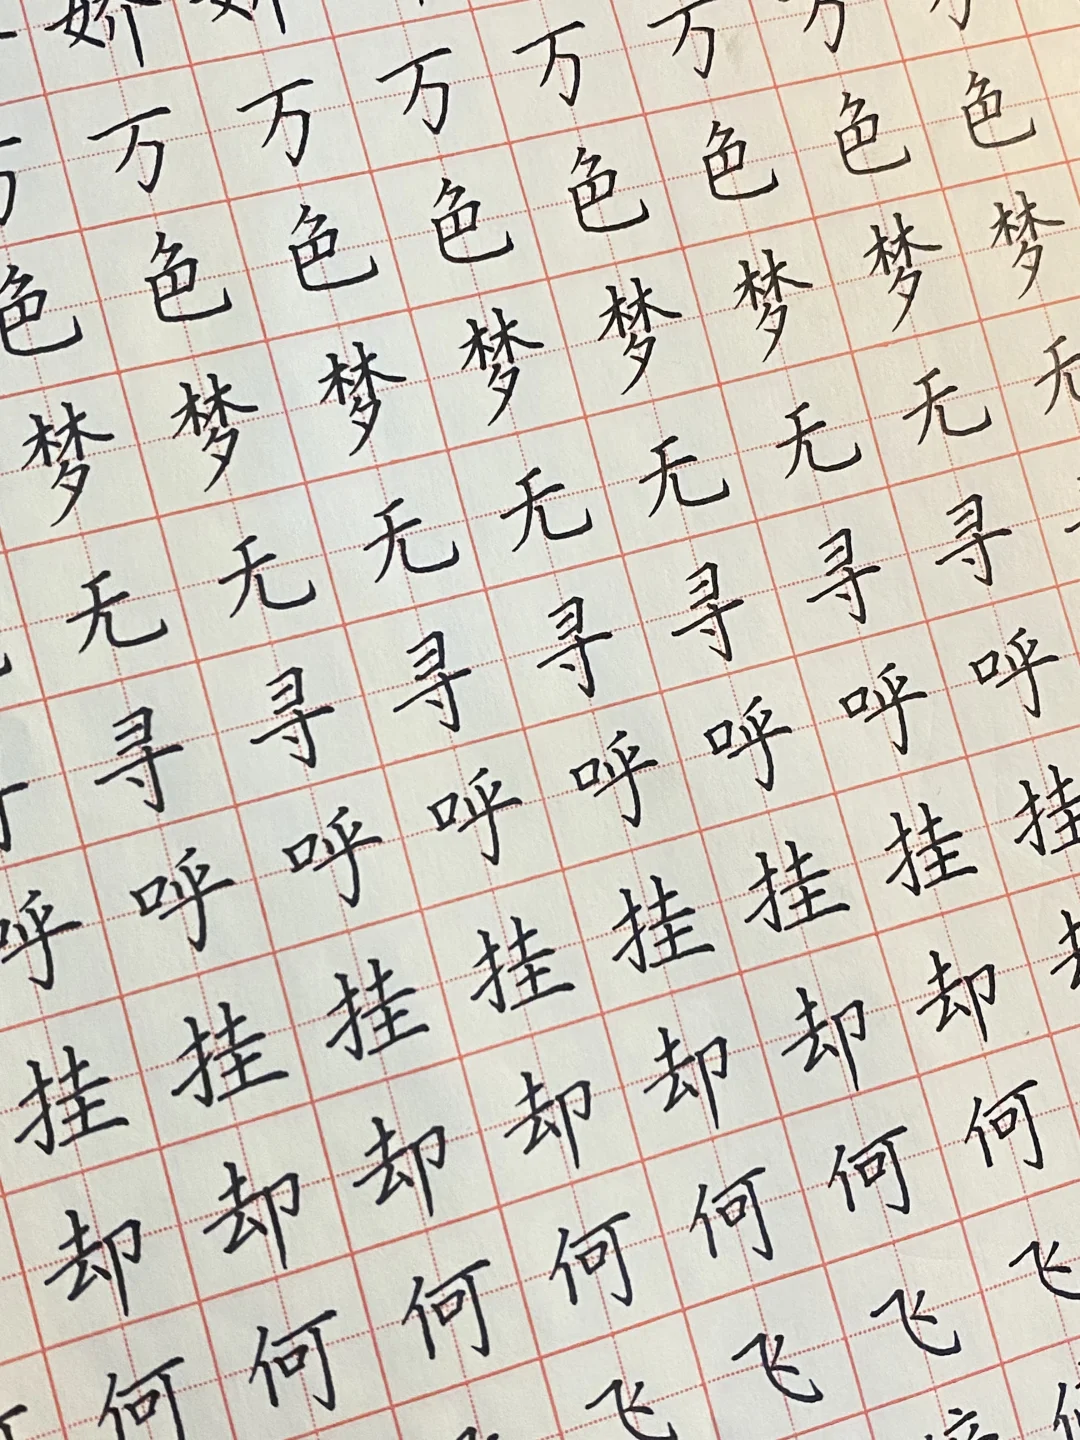 娇
万万万万万万
色色色色色色色色
梦梦梦梦梦梦梦梦
无无无无无无无无
寻寻寻寻寻寻寻
呼呼呼呼呼呼呼呼
挂挂挂挂挂挂挂挂
却却却却却却却
何何何何何何何
飞飞飞飞